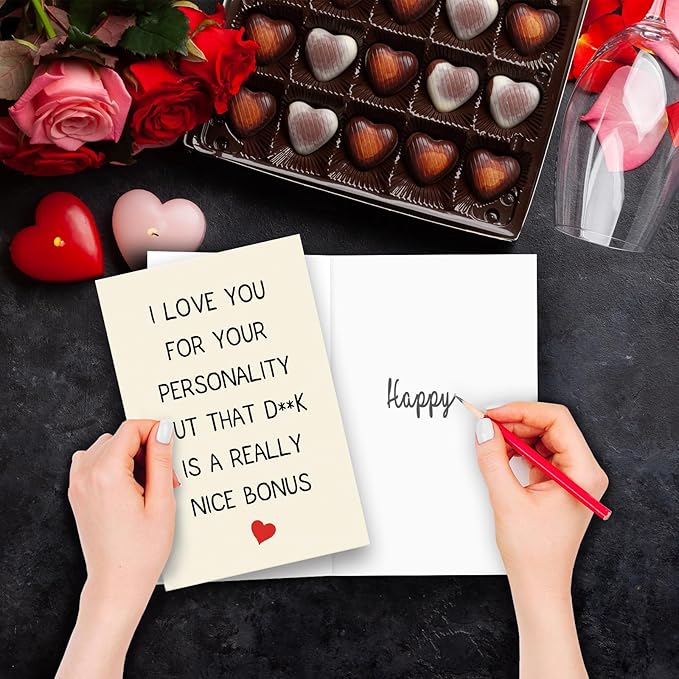 I LOVE YOU
FOR YOUR
PERSONALITY
UT THAT D**K
IS A REALLY
NICE BONUS
Happy